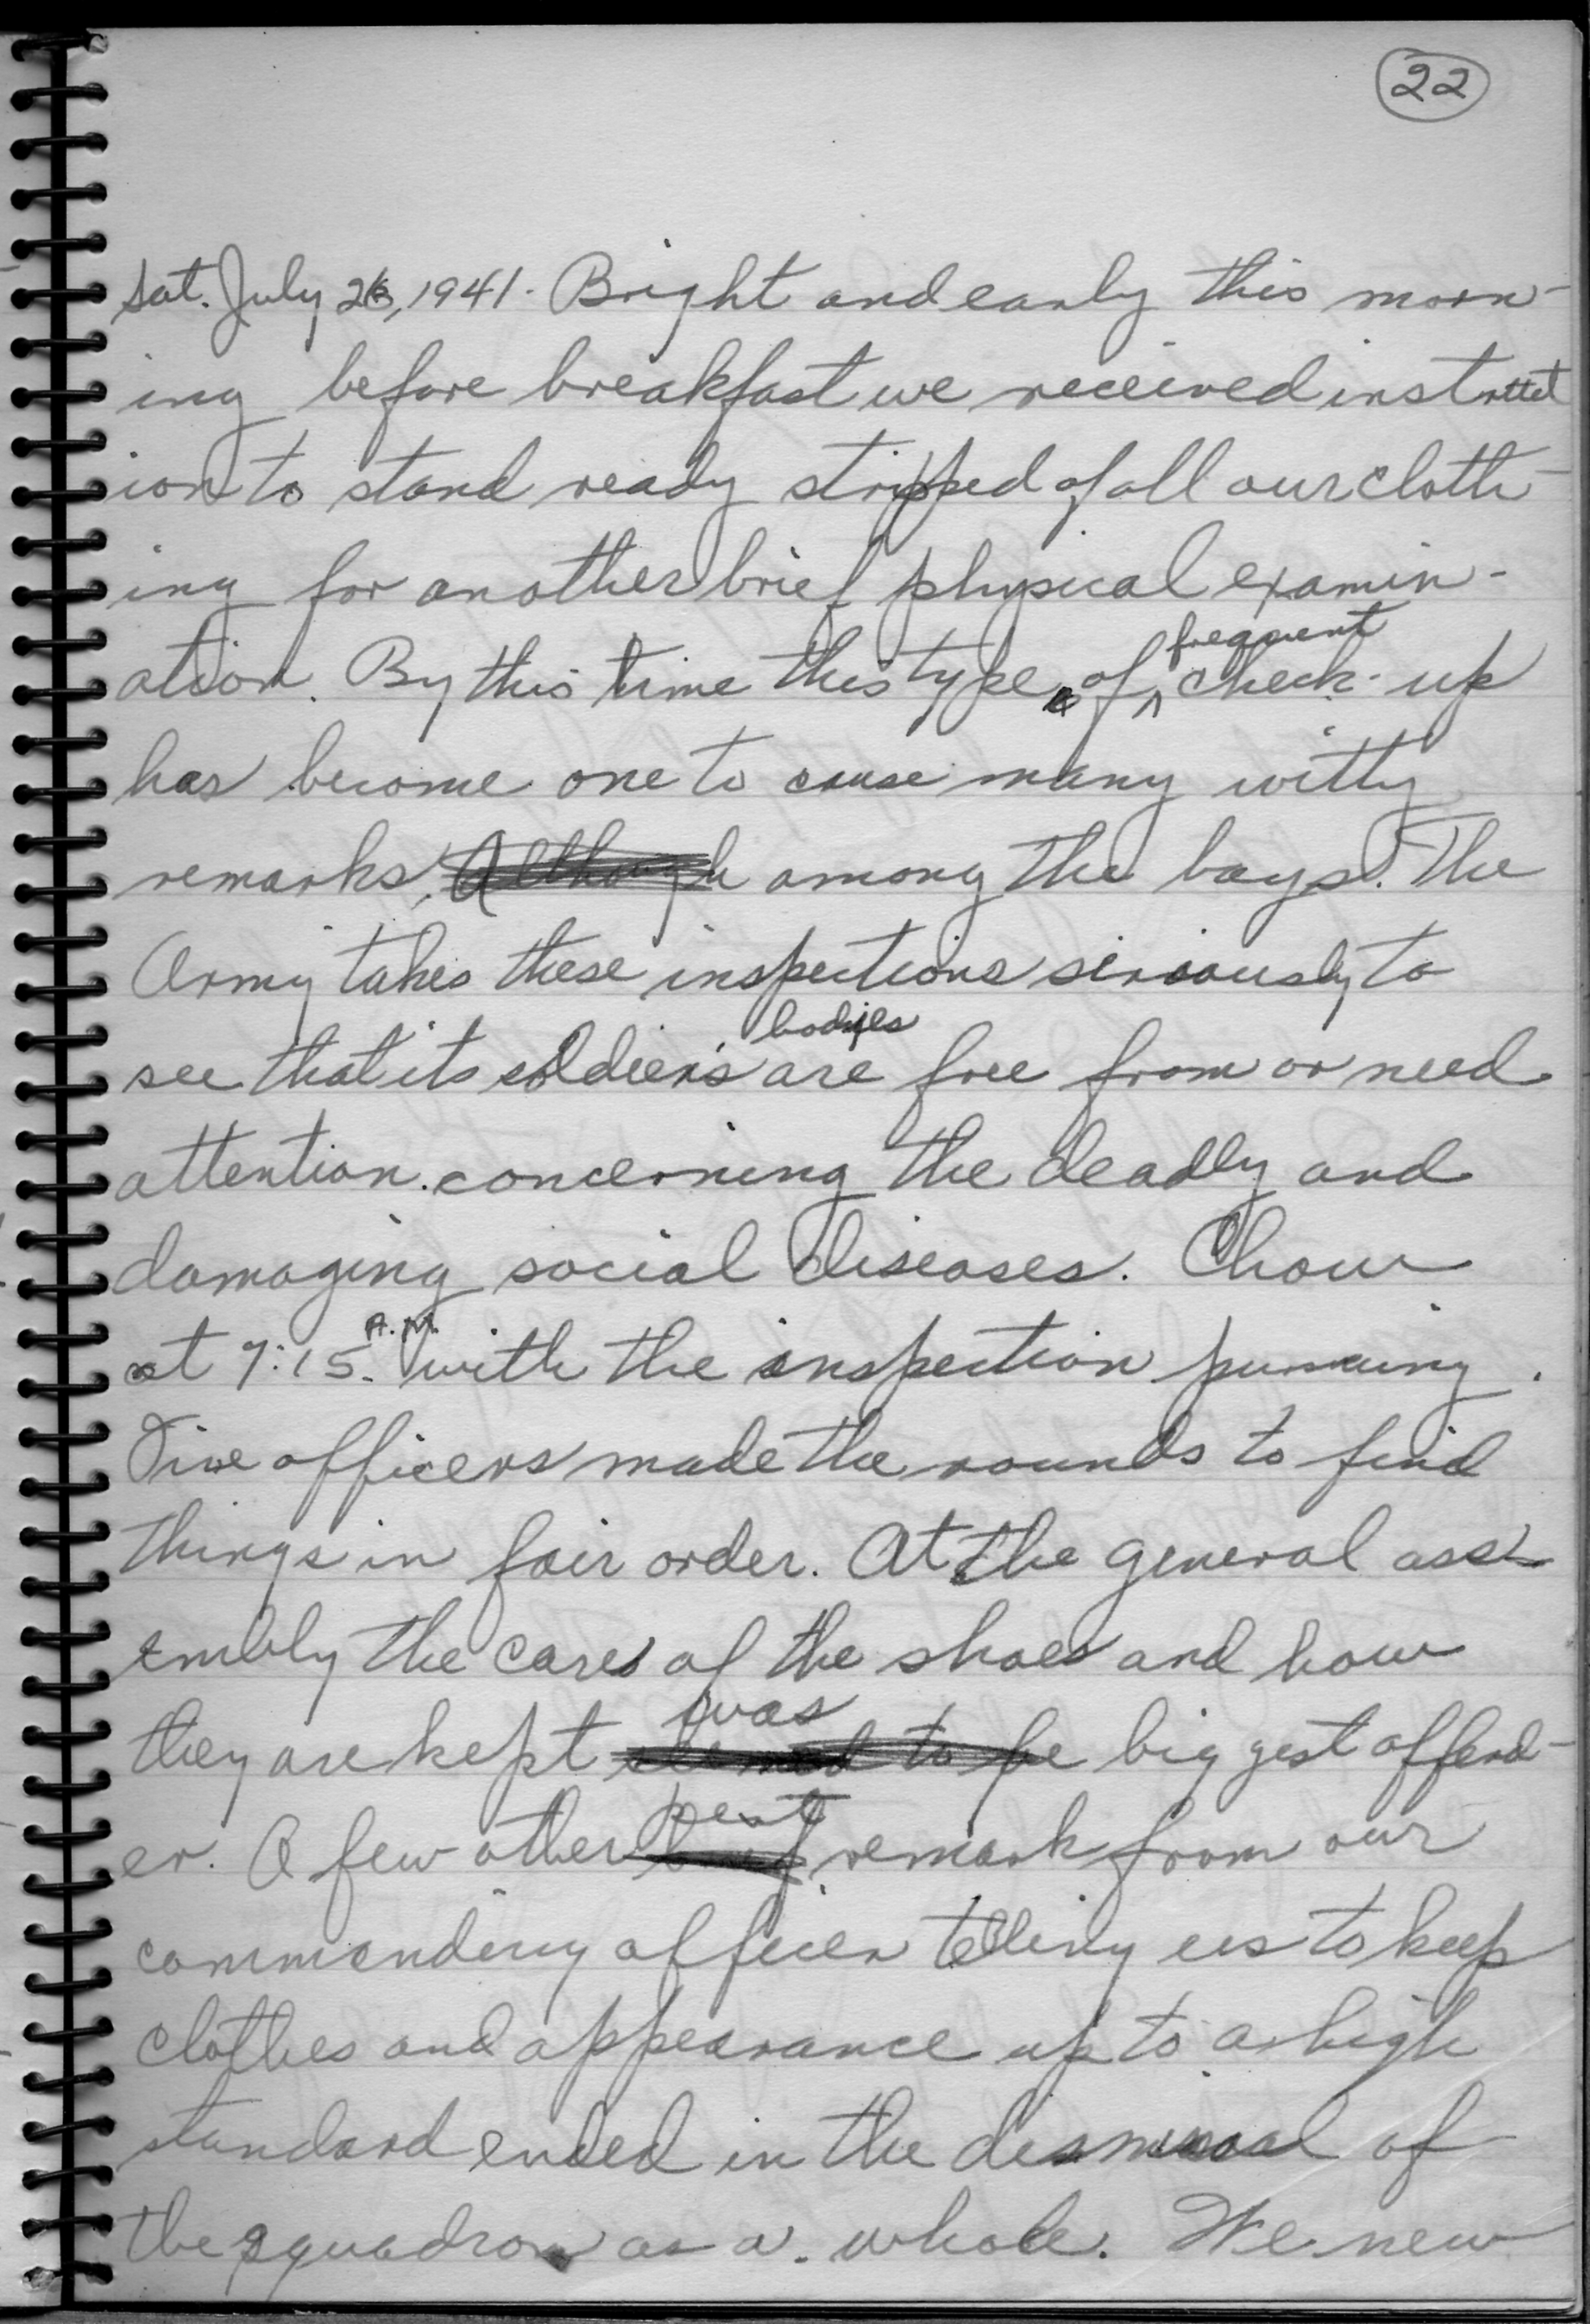 22
Sat. July 26, 1941. Bright and early this morn-
ing before breakfast we received instruct
ion to stand ready stripped of all our cloth-
ing for another brief physical examin-
ation. By this time this type of frequent check-up
has become one to cause many witty
remarks, Although among the boys. The
Army takes these inspections seriously to
see that its soldier's bodies are free from or need
attention concerning the deadly and
damaging social diseases. Chow
at 7:15 A.M. with the inspection pursuing.
Five officers made the rounds to find
things in fair order. At the general ass-
embly the cares of the shoes and how
they are kept was seemed to be biggest offend-
er. A few other pert brief remark from our
commanding officer telling us to keep
clothes and appearance up to a high
standard ended in the dismissal of
the squadron as a whole. We new